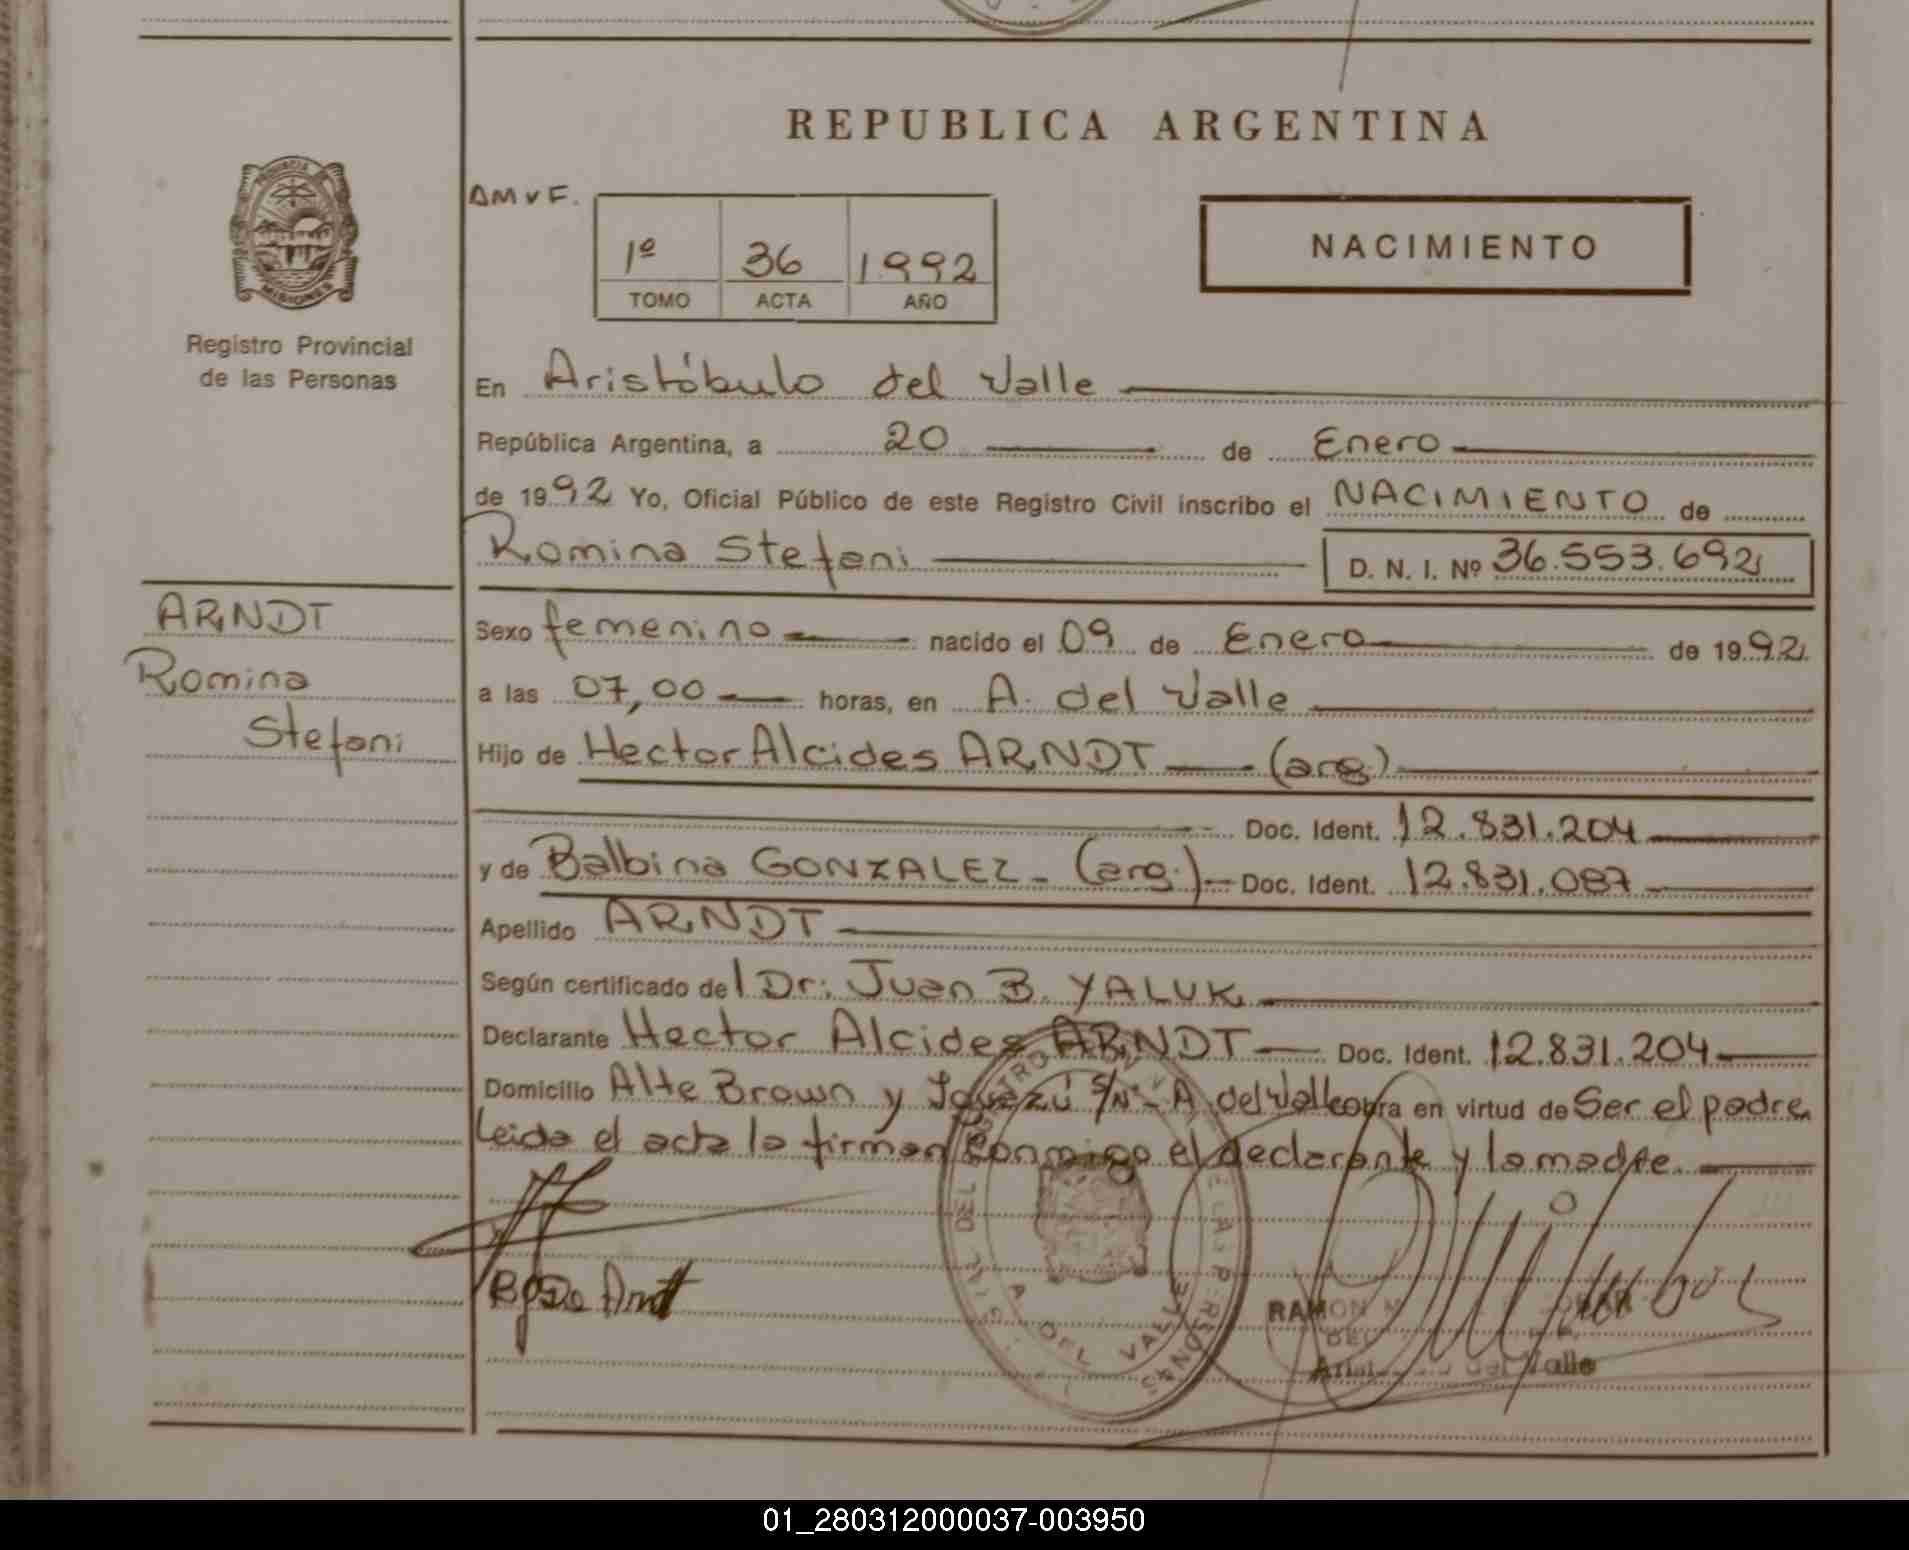 REPUBLICA ARGENTINA
PROVINCIA
MISIONES
Registro Provincial
de las Personas
1º 36 1992
TOMO ACTA AÑO
NACIMIENTO
En Aristóbulo del Valle
República Argentina, a 20 de Enero
de 1992 Yo, Oficial Público de este Registro Civil inscribo el NACIMIENTO de
Romina Stefani D. N. I. Nº 36.553.692
ARNDT
Romina
Stefani
Sexo femenino nacido el 09 de Enero de 1992
a las 07,00 horas, en A. del Valle
Hijo de Hector Alcides ARNDT (arg.)
Doc. Ident. 12.831.204
y de Balbina GONZALEZ - (arg.) Doc. Ident. 12.831.087
Apellido ARNDT
Según certificado del Dr. Juan B. YALUK
Declarante Hector Alcides ARNDT Doc. Ident. 12.831.204
Domicilio Alte Brown y Iguazú S/Nº - A. del Valle obra en virtud de Ser el padre
Leida el acta la firman conmigo el declarante y la madre.
A. DEL VALLE
RAMON
del Valle
01_280312000037-003950